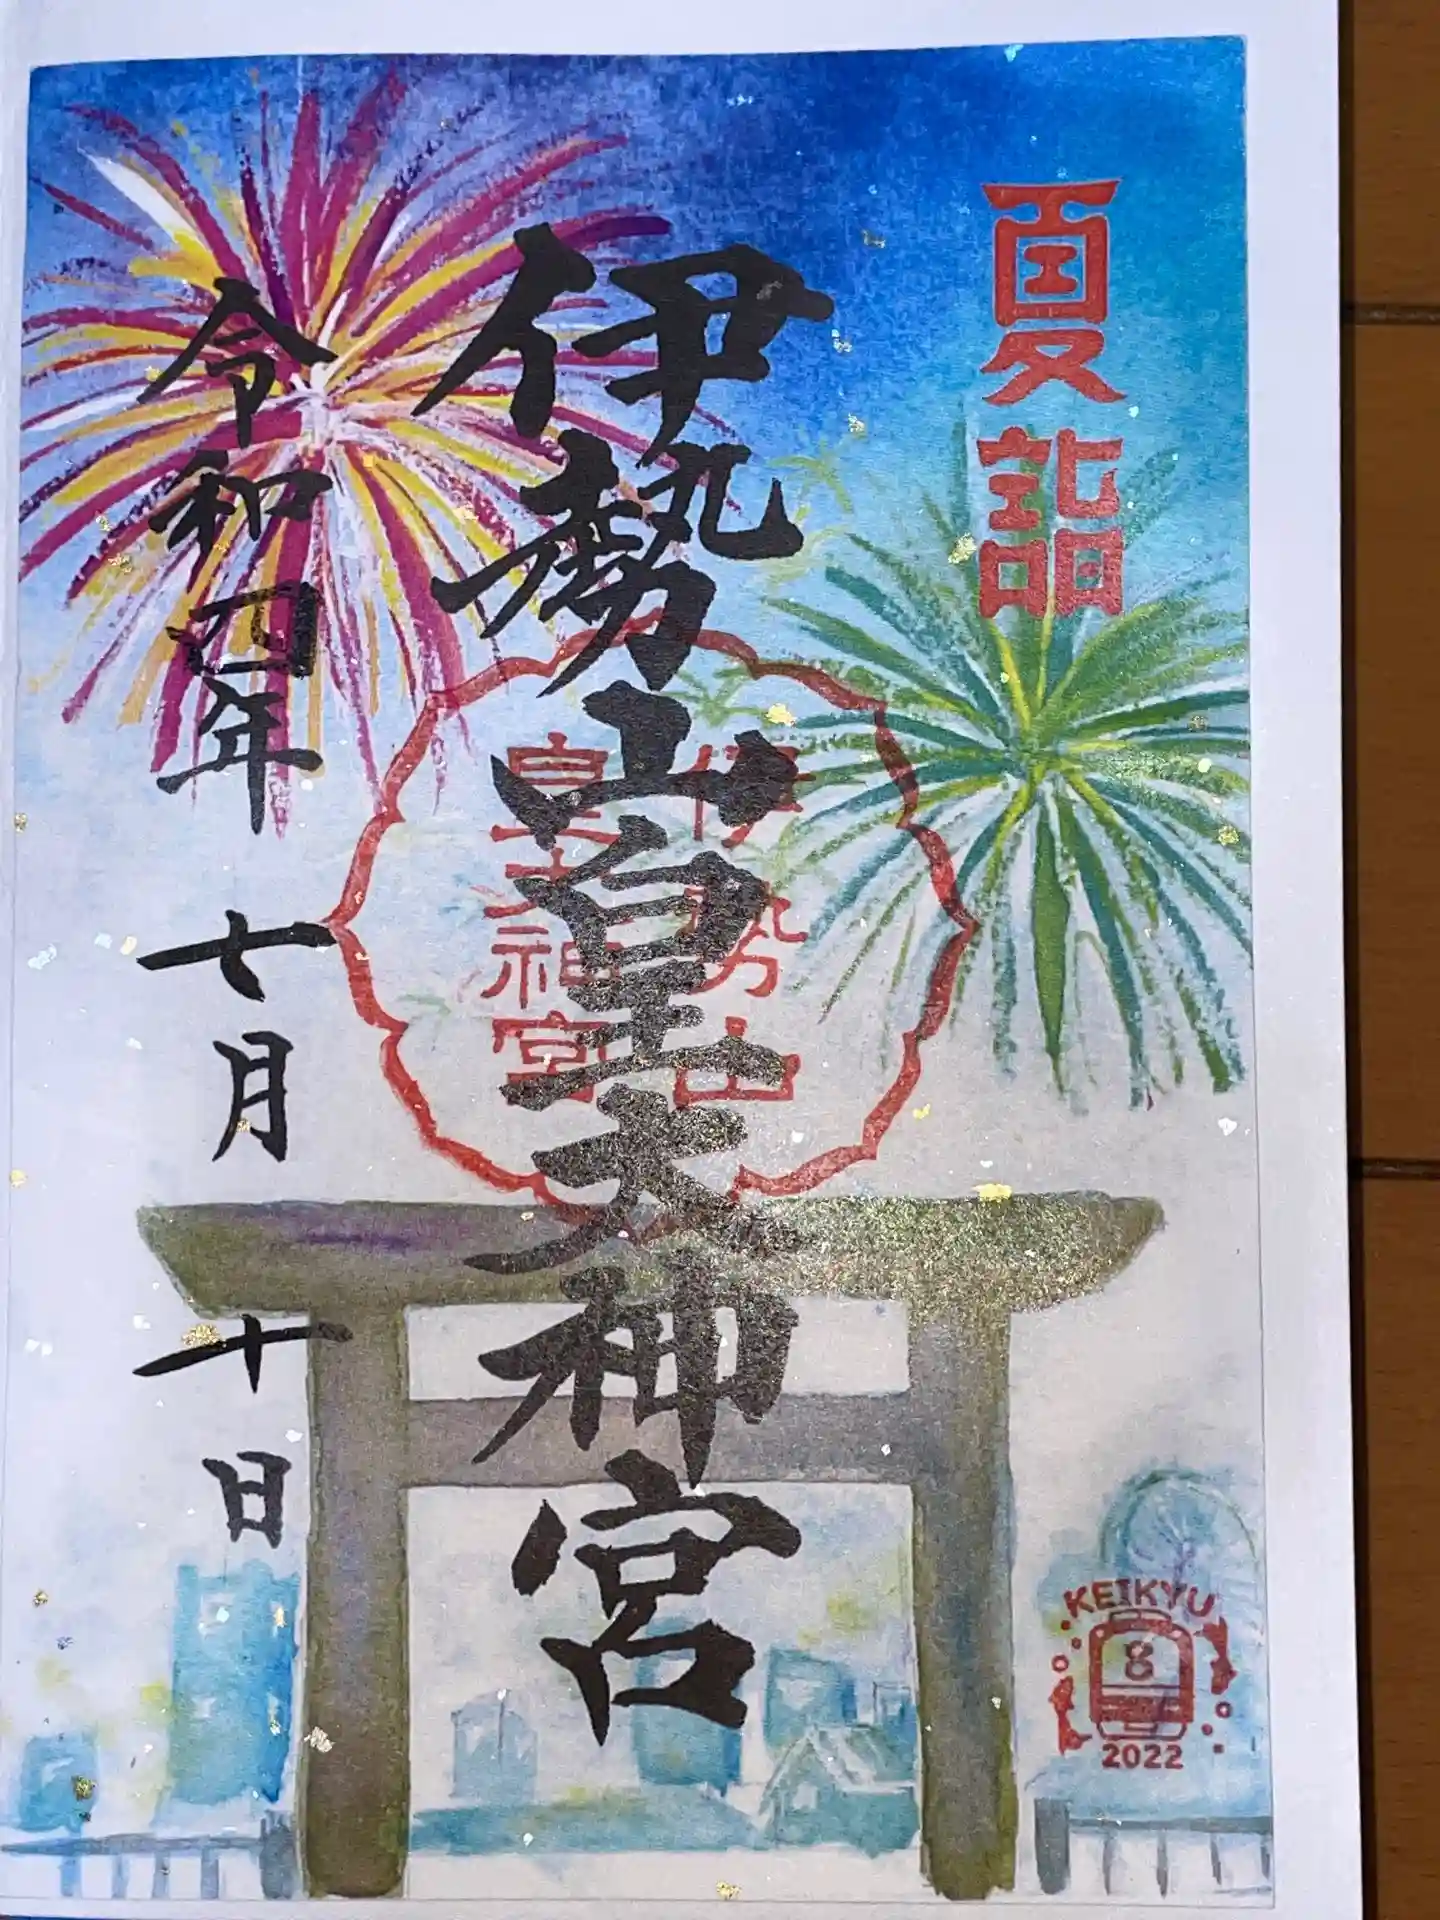 夏詣
伊勢山皇大神宮
伊勢山
皇大神宮
令和四年 七月 十日
KEIKYU
8
2022